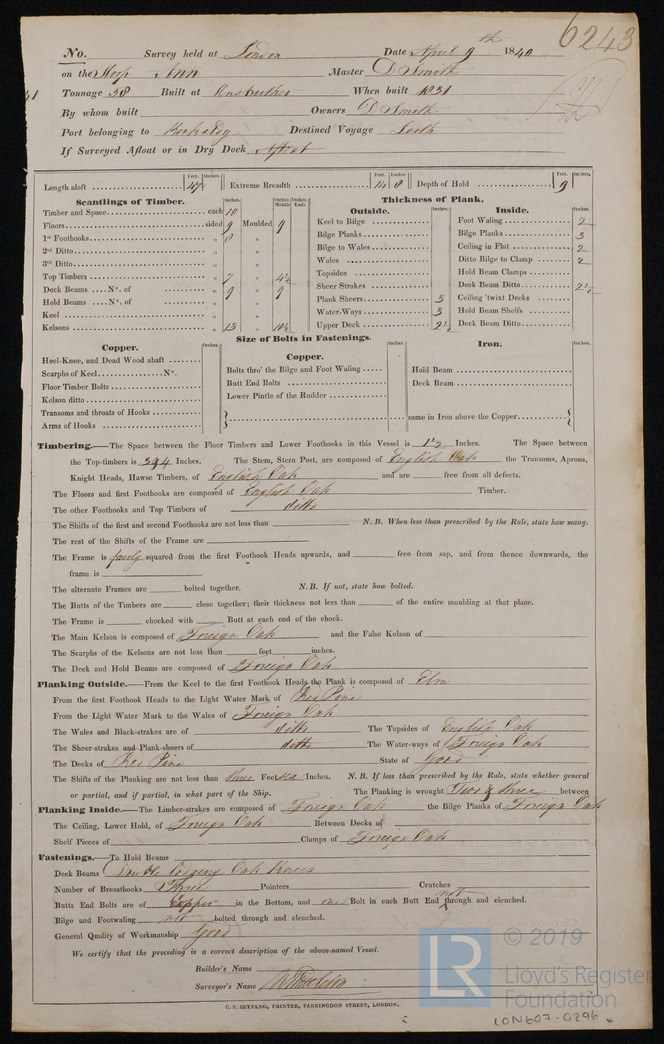 6243
No. Survey held at London Date April 9th 1840
on the Sloop Ann Master D Smith
Tonnage 38 Built at Anstruther When built 1831
By whom built Owners D Smith
Port belonging to Destined Voyage Leith
If Surveyed Afloat or in Dry Dock Afloat
Length aloft Feet. Inches. 47 Extreme Breadth Feet. Inches. 14 8 Depth of Hold Feet. Inches. 9
Scantlings of Timber. Inches. Inches Middle Inches Ends
Thickness of Plank.
Outside. Inches. Inside. Inches.
Timber and Space each 10
Floors sided 9 Moulded 9
1st Foothooks „ 8 „
2nd Ditto „ „
3rd Ditto „ „
Top Timbers „ 7 „ 4½
Deck Beams No. of „ 9 „ 9
Hold Beams No. of „ „
Keel „ „
Kelsons „ 13 „ 10½
Keel to Bilge
Bilge Planks
Bilge to Wales
Wales
Topsides
Sheer Strakes
Plank Sheers 3
Water-Ways 3
Upper Deck 2½
Foot Waling 2
Bilge Planks 3
Ceiling in Flat 2
Ditto Bilge to Clamp 2
Hold Beam Clamps
Deck Beam Ditto 2½
Ceiling 'twixt Decks
Hold Beam Shelfs
Deck Beam Ditto
Size of Bolts in Fastenings.
Copper. Inches. Copper. Inches. Iron. Inches.
Heel-Knee, and Dead Wood abaft
Scarphs of Keel No.
Floor Timber Bolts
Kelson ditto
Transoms and throats of Hooks
Arms of Hooks
Bolts thro' the Bilge and Foot Waling
Butt End Bolts
Lower Pintle of the Rudder
Hold Beam
Deck Beam
same in Iron above the Copper
Timbering.—The Space between the Floor Timbers and Lower Foothooks in this Vessel is 1½ Inches. The Space between
the Top-timbers is 3 & 4 Inches. The Stem, Stern Post, are composed of English Oak the Transoms, Aprons,
Knight Heads, Hawse Timbers, of English Oak and are free from all defects.
The Floors and first Foothooks are composed of English Oak Timber.
The other Foothooks and Top Timbers of ditto
The Shifts of the first and second Foothooks are not less than N.B. When less than prescribed by the Rule, state how many.
The rest of the Shifts of the Frame are
The Frame is fairly squared from the first Foothook Heads upwards, and free from sap, and from thence downwards, the
frame is
The alternate Frames are bolted together. N.B. If not, state how bolted.
The Butts of the Timbers are close together; their thickness not less than of the entire moulding at that place.
The Frame is chocked with Butt at each end of the chock.
The Main Kelson is composed of Foreign Oak and the False Kelson of
The Scarphs of the Kelsons are not less than feet inches.
The Deck and Hold Beams are composed of Foreign Oak
Planking Outside.—From the Keel to the first Foothook Heads the Plank is composed of Elm
From the first Foothook Heads to the Light Water Mark of Red Pine
From the Light Water Mark to the Wales of Foreign Oak
The Wales and Black-strakes are of ditto The Topsides of English Oak
The Sheer-strakes and Plank-sheers of ditto The Water-ways of Foreign Oak
The Decks of Red Pine State of Good
The Shifts of the Planking are not less than three Feet six Inches. N.B. If less than prescribed by the Rule, state whether general
or partial, and if partial, in what part of the Ship. The Planking is wrought Two & three between
Planking Inside.—The Limber-strakes are composed of Foreign Oak the Bilge Planks of Foreign Oak
The Ceiling, Lower Hold, of Foreign Oak Between Decks of
Shelf Pieces of Clamps of Foreign Oak
Fastenings.—To Hold Beams
Deck Beams Double lodging Oak Knees
Number of Breasthooks Three Pointers Crutches
Butts End Bolts are of Copper in the Bottom, and one Bolt in each Butt End not through and clenched.
Bilge and Footwaling not bolted through and clenched.
General Quality of Workmanship Good
We certify that the preceding is a correct description of the above-named Vessel.
Builder's Name
Surveyor's Name
C. F. SEYFANG, PRINTER, FARRINGDON STREET, LONDON.
LR © 2019
Lloyd's Register
Foundation
LON607-0296